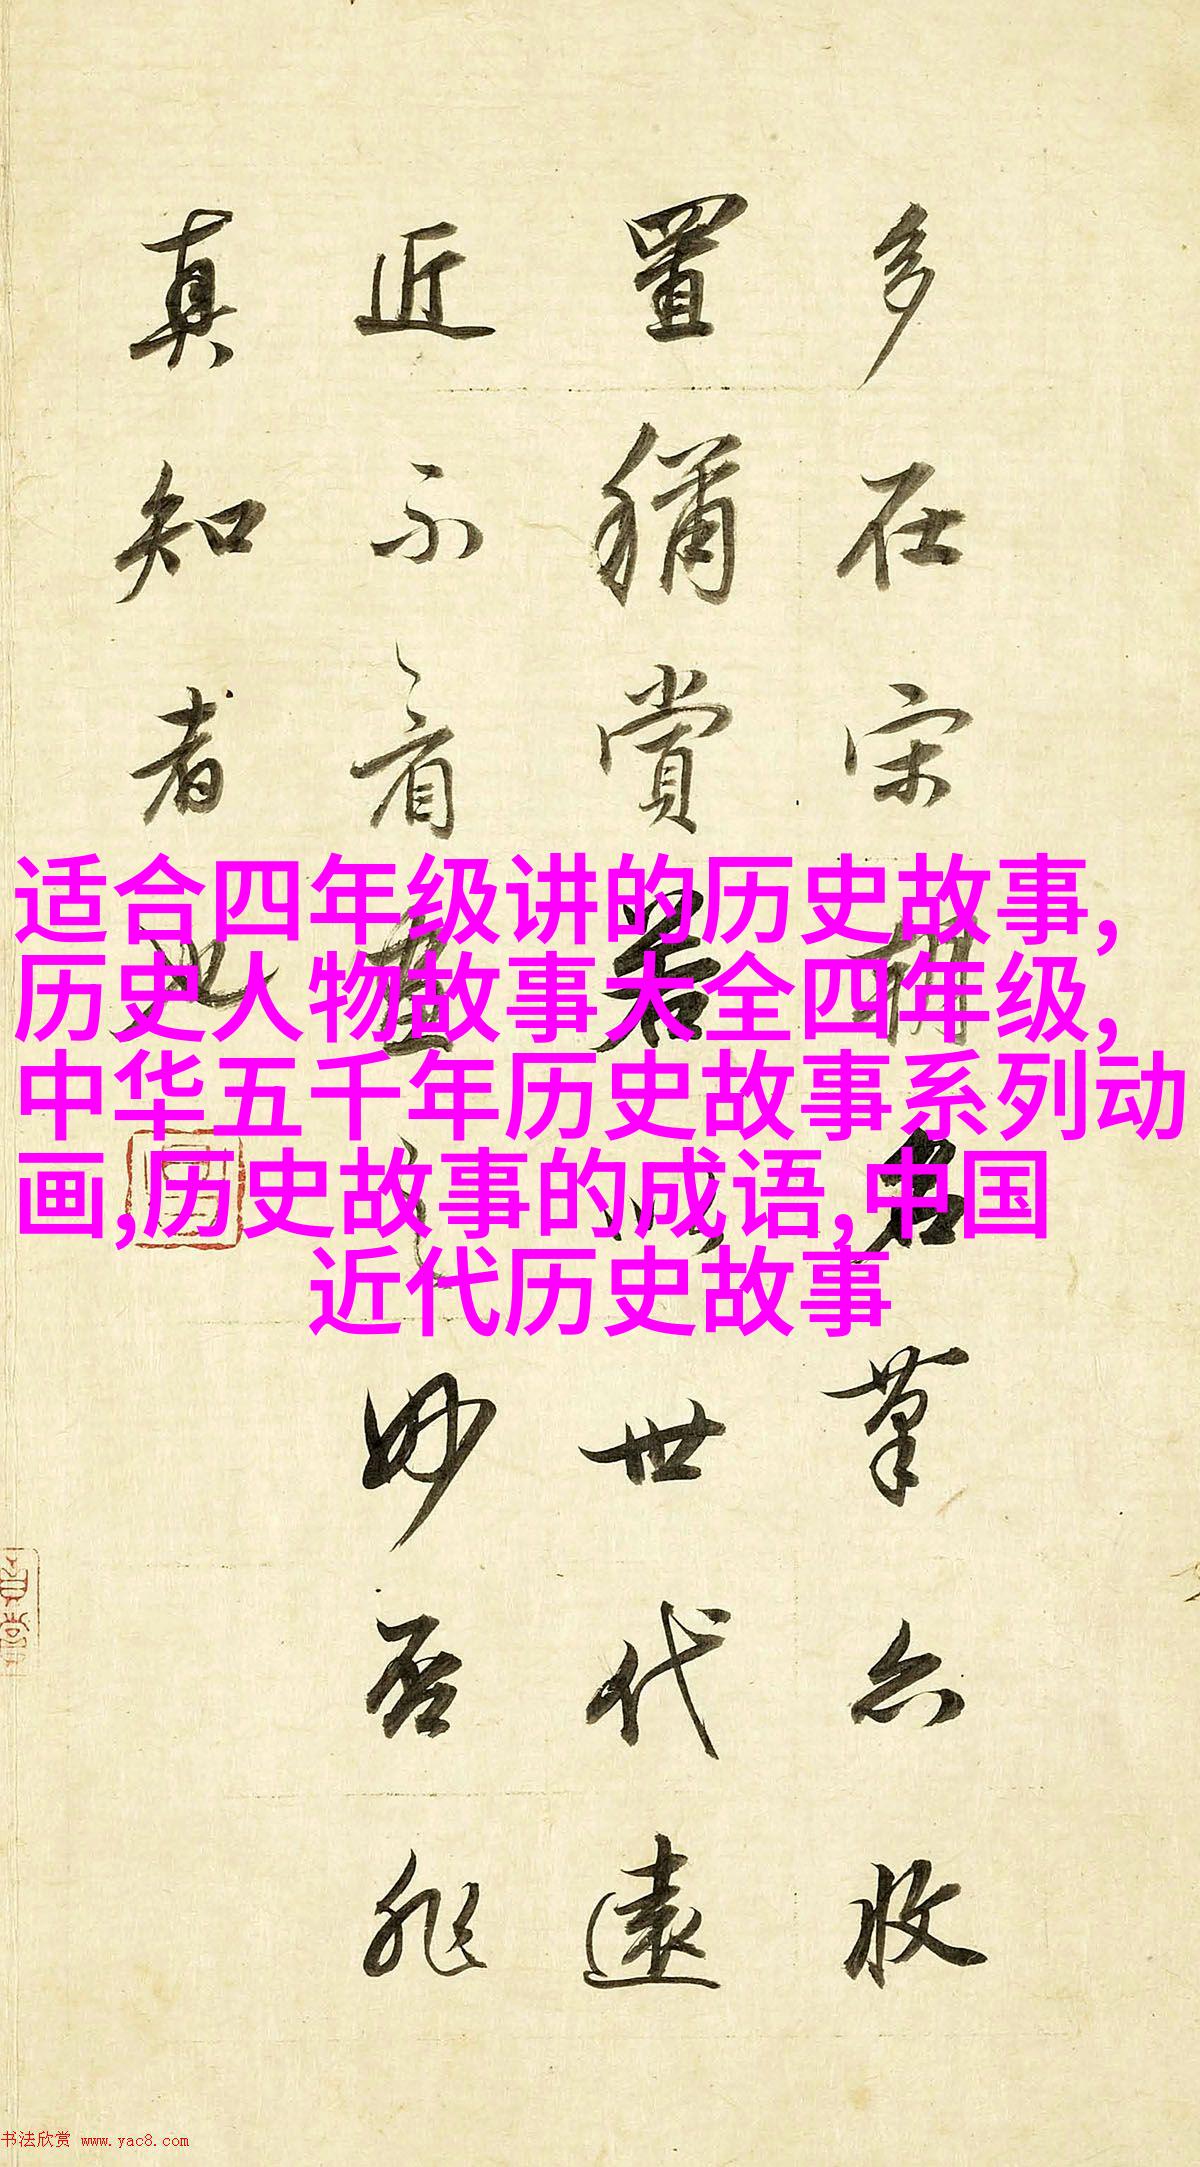 多在宋朝名笔亦收
置猶賞署以世代遠
近不看畫之妙否非
真知者也
适合四年级讲的历史故事,
历史人物故事大全四年级,
中华五千年历史故事系列动
画,历史故事的成语,中国
近代历史故事
书法欣赏 www.yac8.com